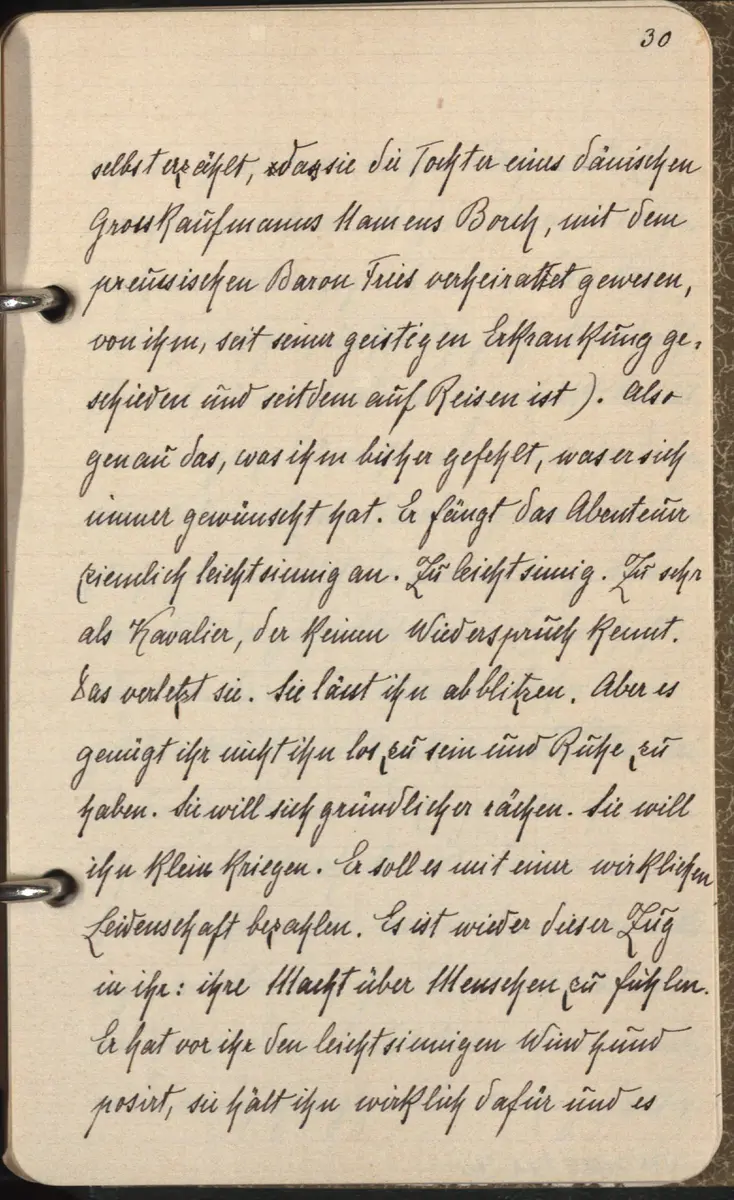 30
selbst erzählt, dass sie die Tochter eines dänischen
Grosskaufmanns Namens Borch, mit dem
preussischen Baron Fries verheiratet gewesen,
von ihm, seit seiner geistigen Erkrankung ge-
schieden und seitdem auf Reisen ist). Also
genau das, was ihm bisher gefehlt, was er sich
immer gewünscht hat. Er fängt das Abenteuer
ziemlich leichtsinnig an. Zu leichtsinnig. Zu sehr
als Kavalier, der keinen Wiederspruch kennt.
Das verletzt sie. Sie lässt ihn abblitzen. Aber es
genügt ihr nicht ihn los zu sein und Ruhe zu
haben. Sie will sich gründlicher rächen. Sie will
ihn klein kriegen. Er soll es mit einer wirklichen
Leidenschaft bezahlen. Es ist wieder dieser Zug
in ihr: ihre Macht über Menschen zu fühlen.
Er hat vor ihr den leichtsinnigen Windhund
posirt, sie hält ihn wirklich dafür und es